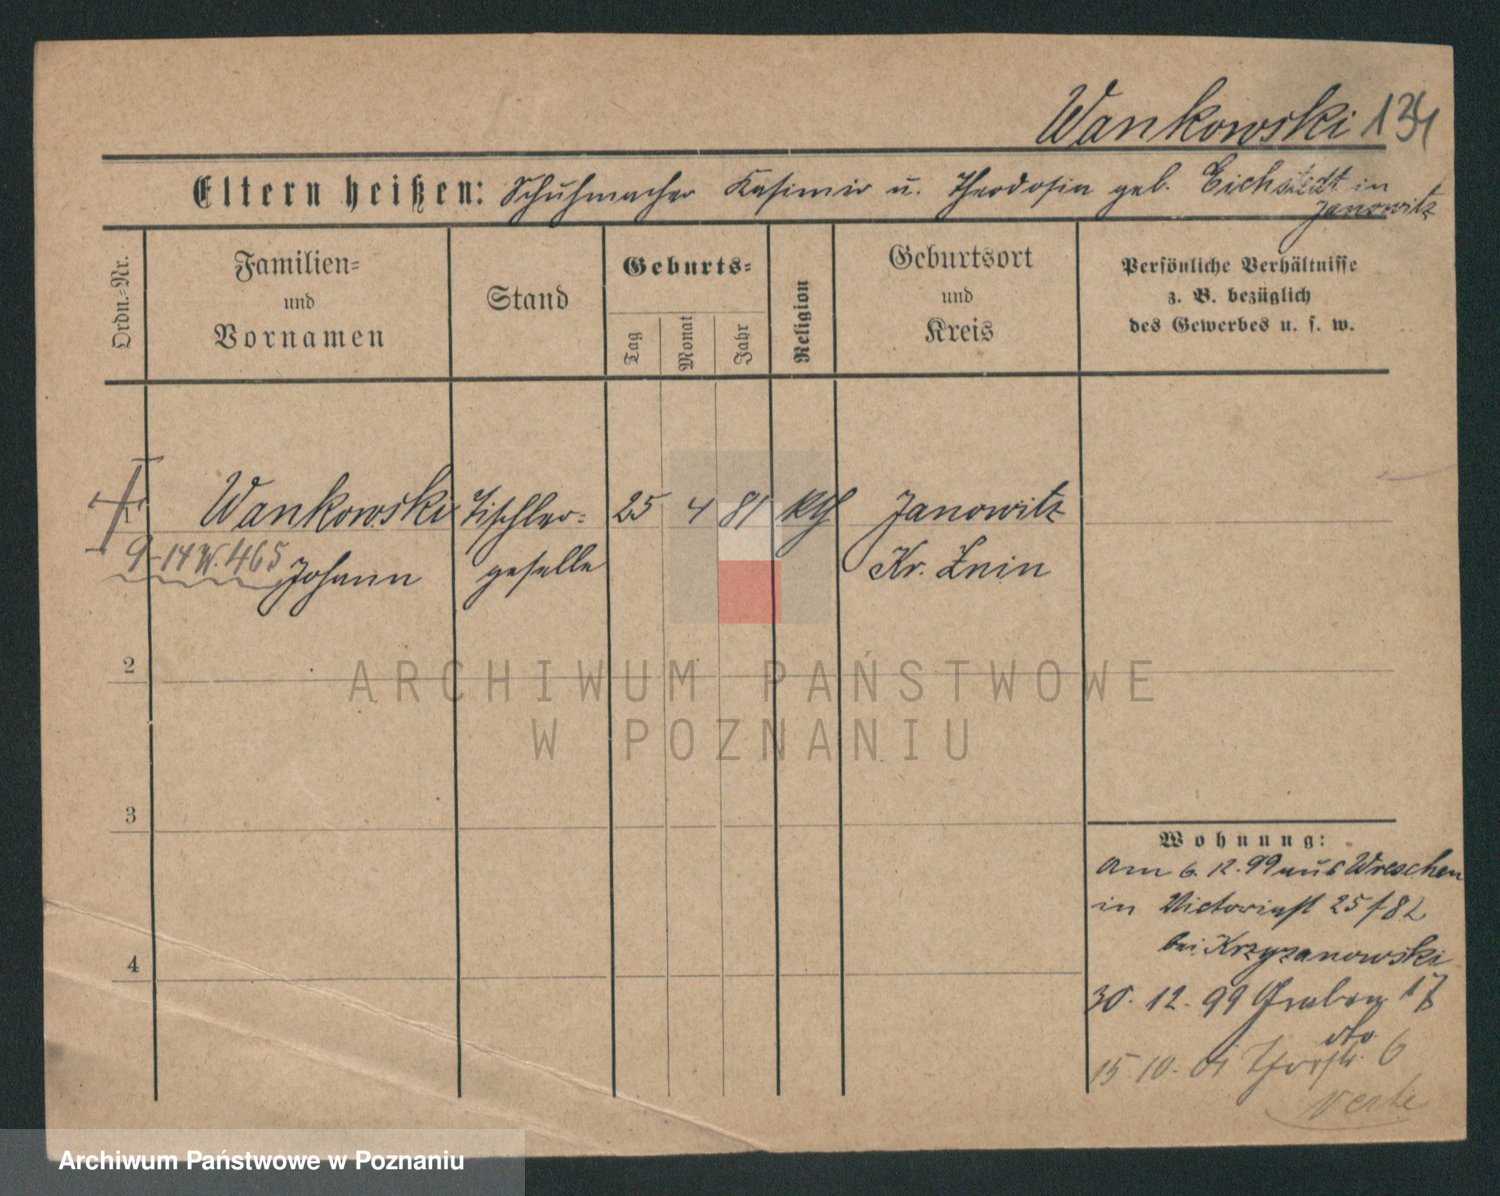 Wankowski 134
Eltern heißen: Schuhmacher Kasimir u. Theodosia geb. Eichstädt in
Janowitz
Ordn.-Nr.
Familien-
und
Vornamen
Stand
Geburts-
Tag
Monat
Jahr
Religion
Geburtsort
und
Kreis
Persönliche Verhältnisse
z. B. bezüglich
des Gewerbes u. s. w.
1 Wankowski Tischler- 25 4 81 kth Janowitz
9-14 W. 465 Johann geselle Kr. Znin
2
ARCHIWUM PAŃSTWOWE
W POZNANIU
3
Wohnung:
Am 6.12.99 aus Wreschen
in Victoriast 25
bei Krzyzanowski
30. 12. 99 Graben 17
dto
15 10. 01 6
4
Archiwum Państwowe w Poznaniu